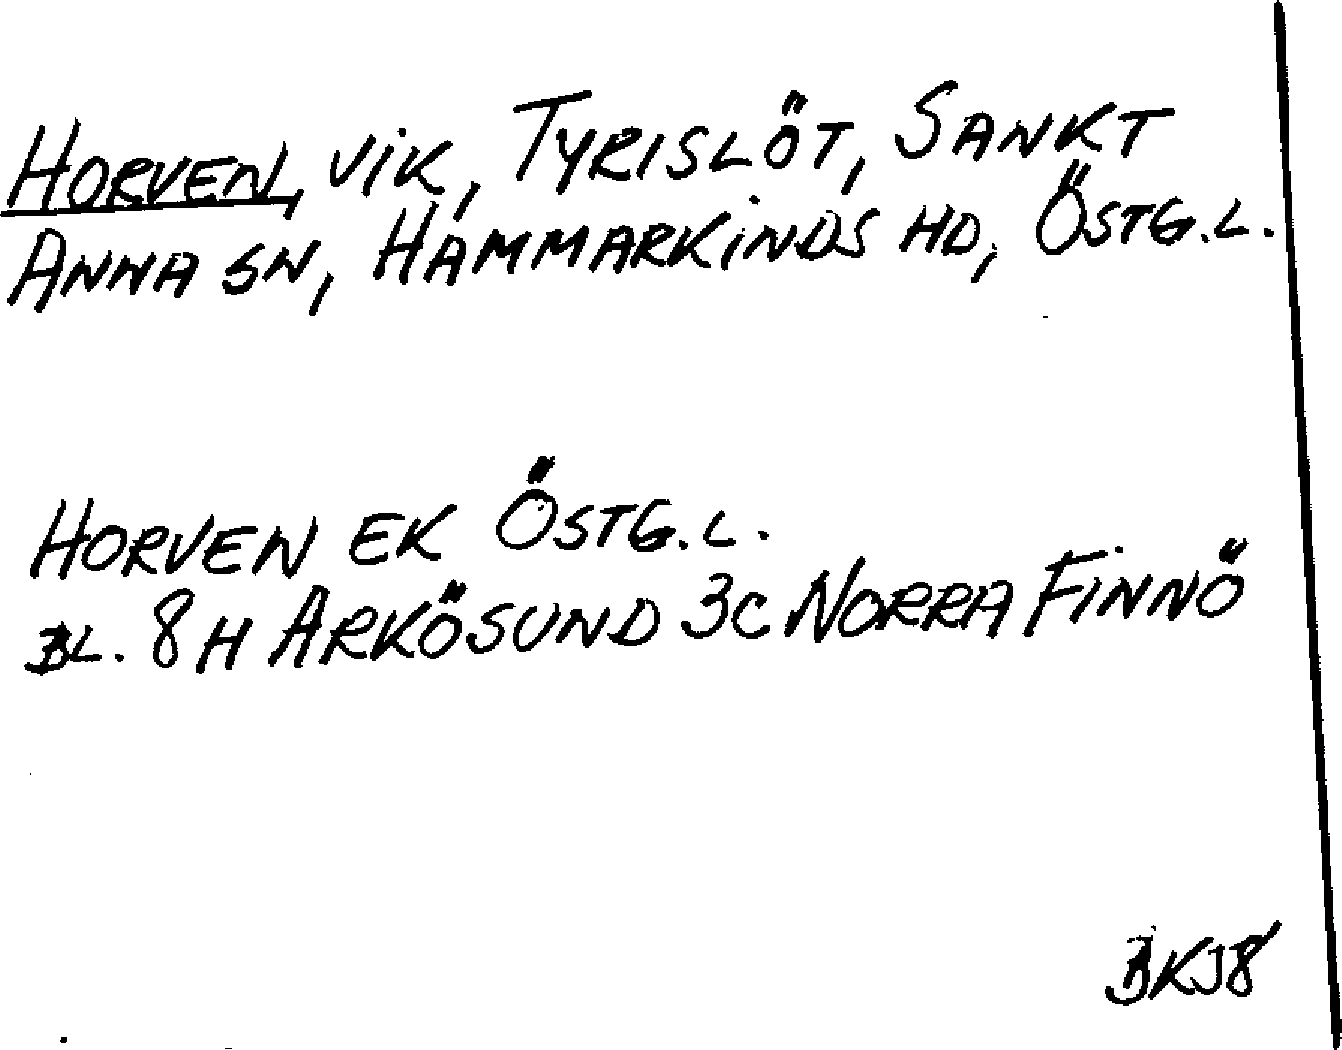 HORVEN, VIK, TYRISLÖT, SANKT
ANNA SN, HAMMARKINDS HD, ÖSTG.L.
HORVEN EK ÖSTG.L.
BL. 8H ARKÖSUND 3C NORRA FINNÖ